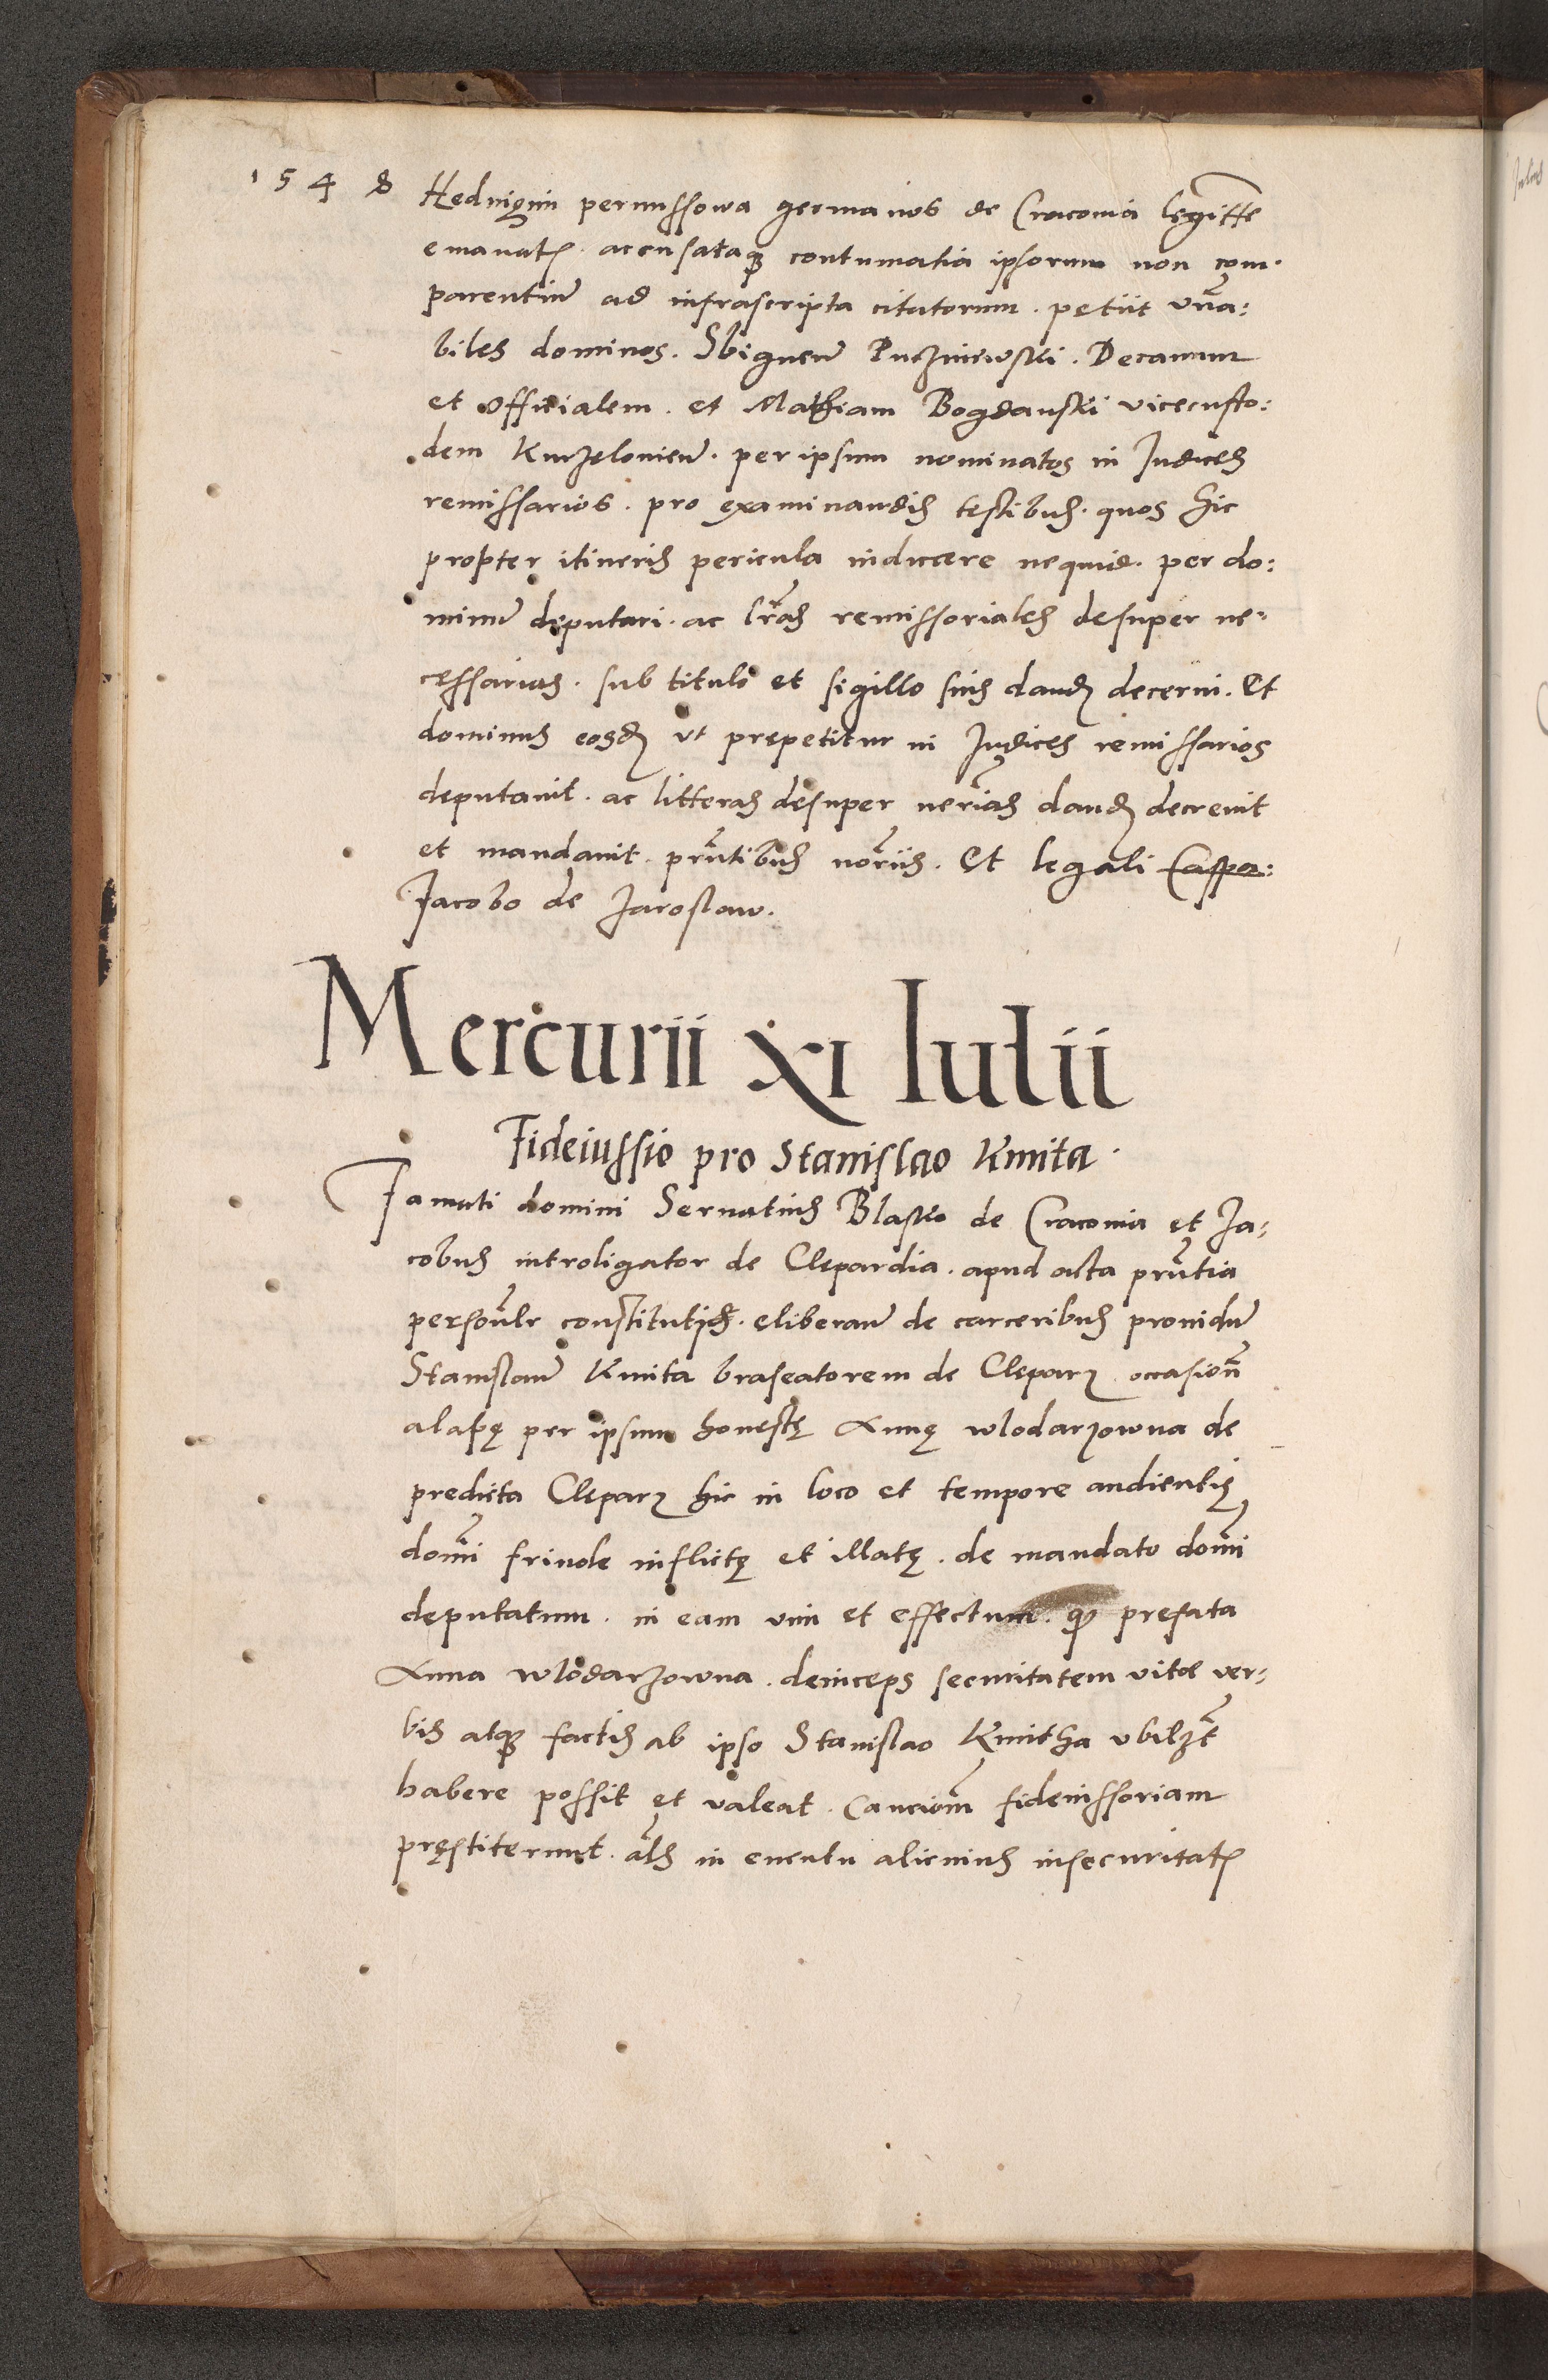 1548
Hedvigim pernussowa germanos de Cracovia legitte
emanatis. accusataque contumatia ipsorum non com-
parentiu ad infrascripta citatorum. petiit vna:
biles dominos. Sbigneu Puczniewski. Decanum
et Officialem. et Mathiam Bogdanski vicecusto:
dem Kurzelovien. per ipsum nominatos in Judices
remissarios. pro examinandis testibus. quos hic
propter itineris pericula inducere nequid. per do:
minu deputari. ac lras remissoriales desuper ne-
cessarias. sub titulo et sigillo suis dand decerni. Et
dominus eosd vt prepetitur in Judices remissarios
deputavit. ac litteras desuper nerias dand decrevit
et mandavit. prntibus noriis. Et legali Caspa:
Jacobo de Jaroslaw.
Mercurii XI Iulii
Fideiussio pro Stanislao Kmita.
Famati domini Servatius Blasko de Cracovia et Ja-
cobus introligator de Clepardia. apud acta prntia
personlr constituti. eliberan de carceribus providu
Stanislau Kmita braseatorem de Clepars occasion
alapę per ipsum honestę Annę wlodarzowna de
predicta Clepars hic in loco et tempore audientię
domi frivole inflictę et illatę. de mandato domi
deputatum. in eam vim et effectum. q prefata
Anna wlodarzowna. deinceps securitatem vitę ver-
bis atque factis ab ipso Stanislao Kmitha vbilzt
habere possit et valeat. Caucionm fideiussoriam
pręstiterunt. als in eventu alicuius insecuritatis